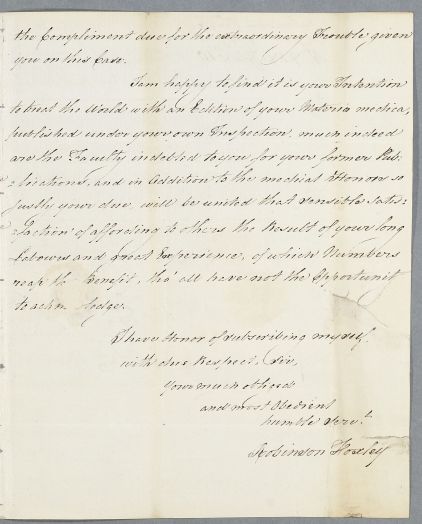 the Compliment due for the extraordinary Trouble given
you on this Case.
I am happy to find it is your Intention
to treat the World with an Edition of your Materia medica,
published under your own Inspection, much indeed
are the Faculty indebted to you for your former Pub-
-lications, and in Addition to the medical Honors so
justly your due, will be united that sensible Satis-
-faction of affording to others the Result of your long
Labours and great Experience, of which Numbers
reap the Benefit, tho' all have not the Opportunity
to ackn ledge.
I have Honor of subscribing myself,
with due Respect, Sir,
your much obliged
and most Obedient
humble Serv.t
Robinson